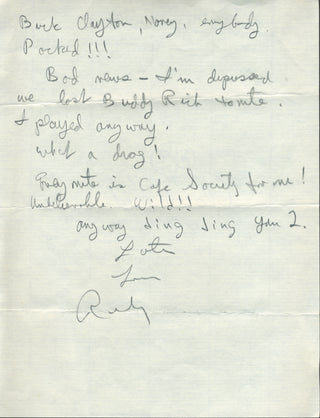 Buck Clayton, Norey, everybody.
Packed!!!
Bad news - I'm depressed
we lost Buddy Rich tonite.
I played anyway.
What a drag!
Every nite is Cafe Society for me!
Unbelievable Wild!!
anyway ding ding you 2.
Later
Love
Rudy